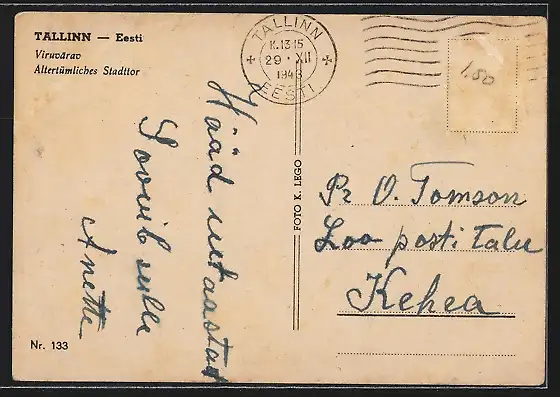 TALLINN — Eesti
Viruvärav
Altertümliches Stadttor
TALLINN
K.13 15
29 · XII
1943
EESTI
1.50
Hääd uutaastat
Soovib sulle
Anette
FOTO K. LEGO
Pr O. Tomson
Loo posti talu
Kehra
Nr. 133